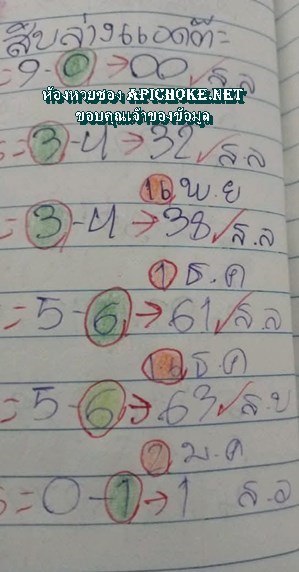 สิบล่างแอดติ=
=9-0→00✓ส.ล
ห้องหวยซอง APICHOKE.NET
ขอบคุณเจ้าของข้อมูล
=3-4→32✓ส.ล
16 พ.ย
=3-4→38✓ส.ล
1 ธ.ค
=5-6→61✓ส.ล
16 ธ.ค
=5-6→63✓ส.บ
2 ม.ค
=0-1→1 ส.ล